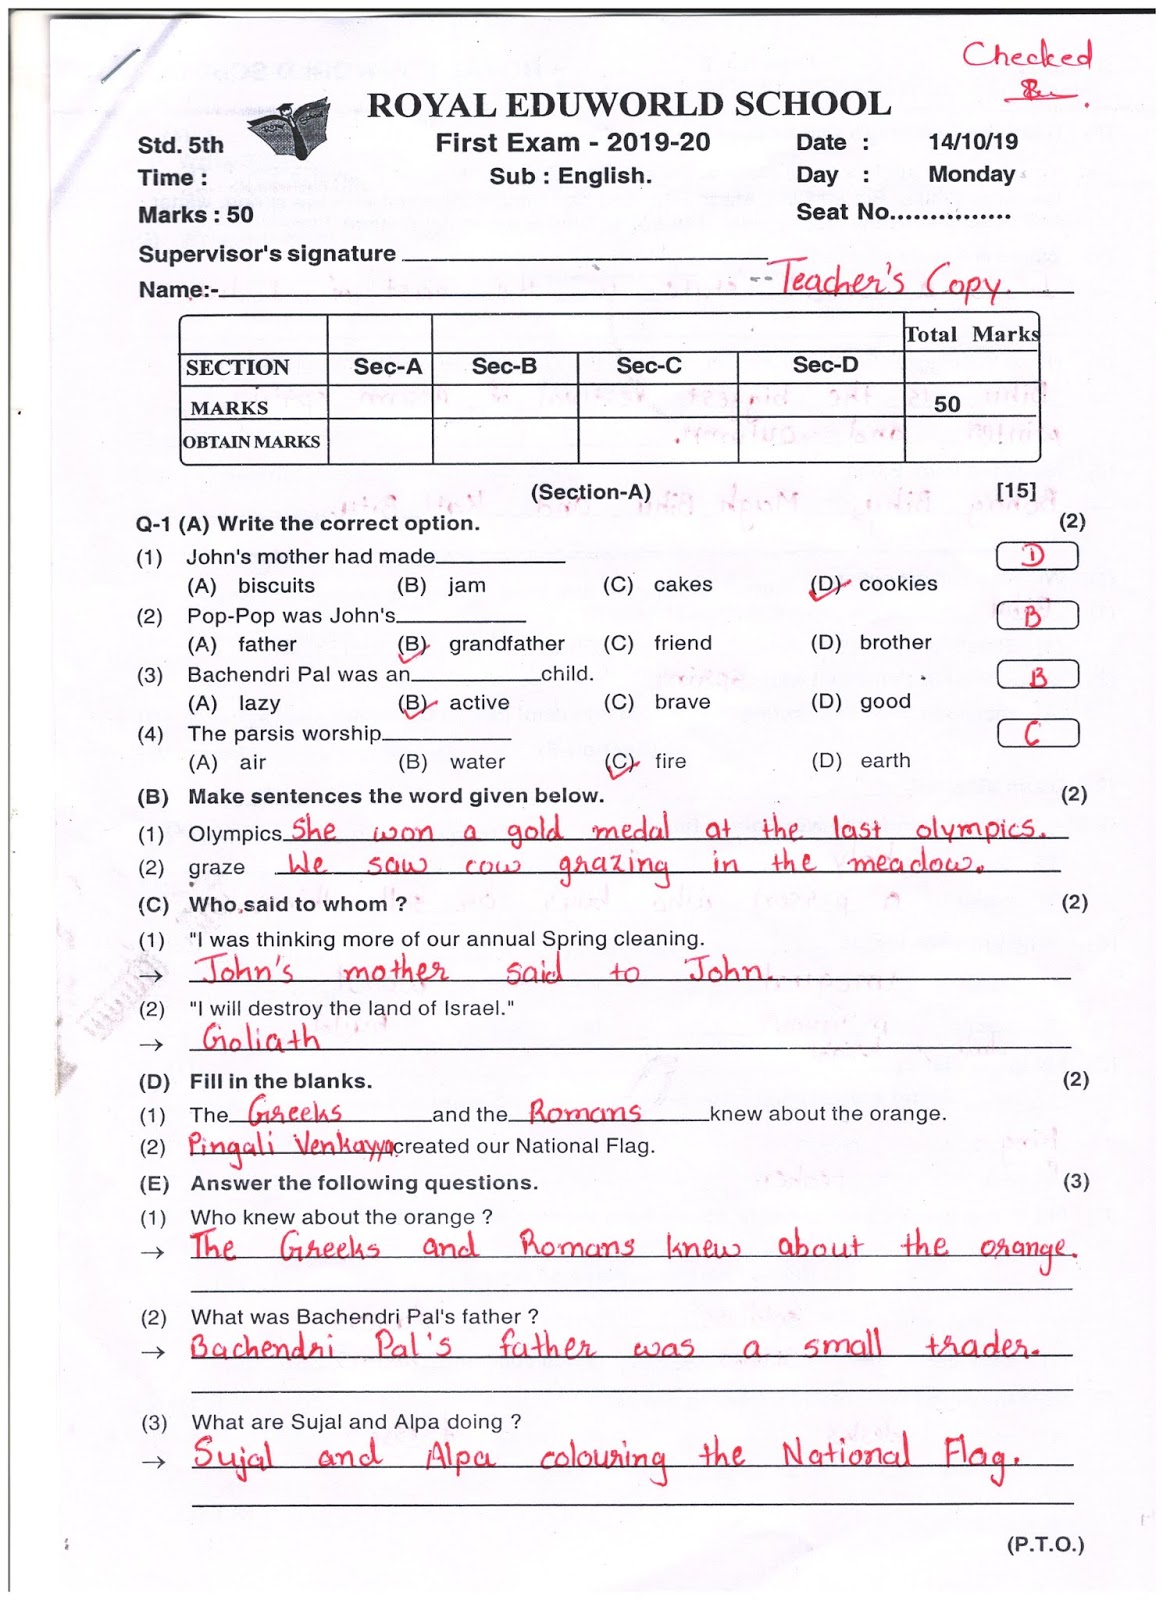 Checked
ROYAL EDUWORLD SCHOOL
Std. 5th First Exam - 2019-20 Date : 14/10/19
Time : Sub : English. Day : Monday
Marks : 50 Seat No...............
Supervisor's signature
Name:- Teacher's Copy.
Total Marks
SECTION Sec-A Sec-B Sec-C Sec-D
MARKS 50
OBTAIN MARKS
(Section-A) [15]
Q-1 (A) Write the correct option. (2)
(1) John's mother had made____________ D
(A) biscuits (B) jam (C) cakes (D) cookies
(2) Pop-Pop was John's____________ B
(A) father (B) grandfather (C) friend (D) brother
(3) Bachendri Pal was an____________child. B
(A) lazy (B) active (C) brave (D) good
(4) The parsis worship____________ C
(A) air (B) water (C) fire (D) earth
(B) Make sentences the word given below. (2)
(1) Olympics She won a gold medal at the last olympics.
(2) graze We saw cow grazing in the meadow.
(C) Who said to whom ? (2)
(1) "I was thinking more of our annual Spring cleaning.
→ John's mother said to John.
(2) "I will destroy the land of Israel."
→ Goliath
(D) Fill in the blanks. (2)
(1) The Greeks and the Romans knew about the orange.
(2) Pingali Venkayya created our National Flag.
(E) Answer the following questions. (3)
(1) Who knew about the orange ?
→ The Greeks and Romans knew about the orange.
(2) What was Bachendri Pal's father ?
→ Bachendri Pal's father was a small trader.
(3) What are Sujal and Alpa doing ?
→ Sujal and Alpa colouring the National Flag.
(P.T.O.)